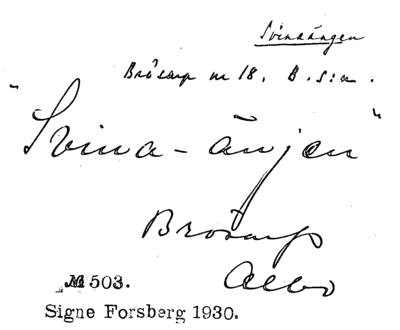 Svinaängen
Brösarp nr 18. B. s:n.
"Svina-änjen"
Brösarp
Albo
№ 503.
Signe Forsberg 1930.